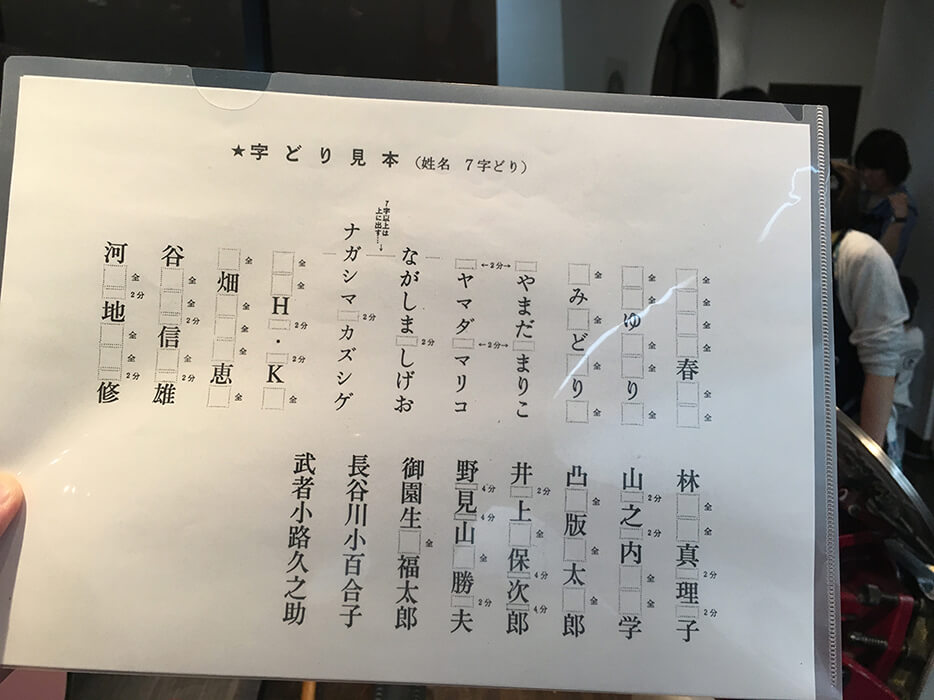 ★字どり見本（姓名 7字どり）
全全全全春全全
全全ゆ全全り全
全み全ど全り全
やまだまりこ
←2分→
←2分→
ヤマダマリコ
ながしま2分しげお
7字以上は
上に出す…↓
ナガシマ2分カズシゲ
全全H2分・2分K全
全畑全全全恵全
谷全全2分信全2分雄
河全2分地全全2分修
林全全真2分理2分子
山2分之2分内全全学
凸全版全太全郎
井2分上全保4分次4分郎
野4分見4分山全勝2分夫
御園生全福太郎
長谷川小百合子
武者小路久之助